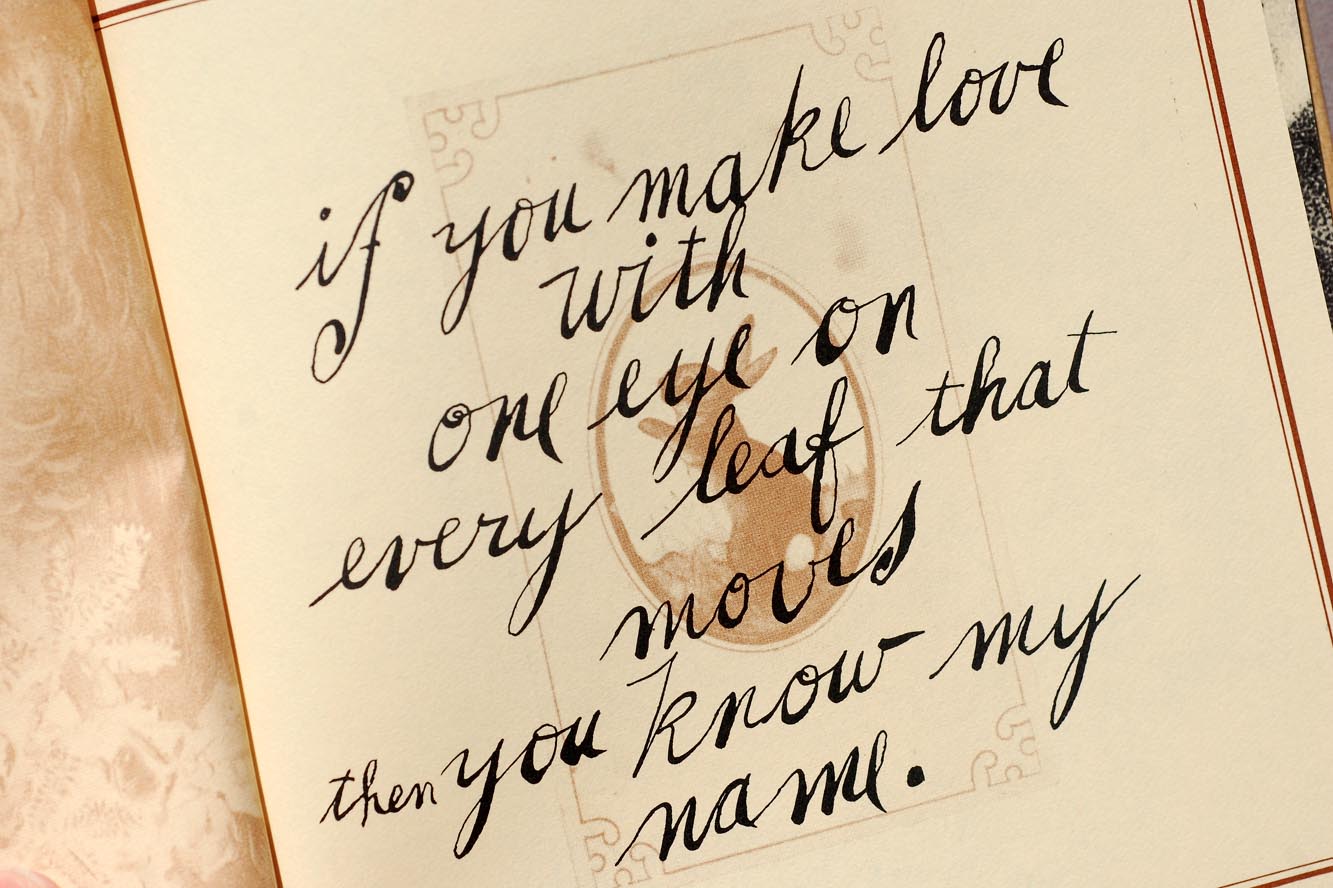 if you make love
with
one eye on
every leaf that
moves
then you know my
name.